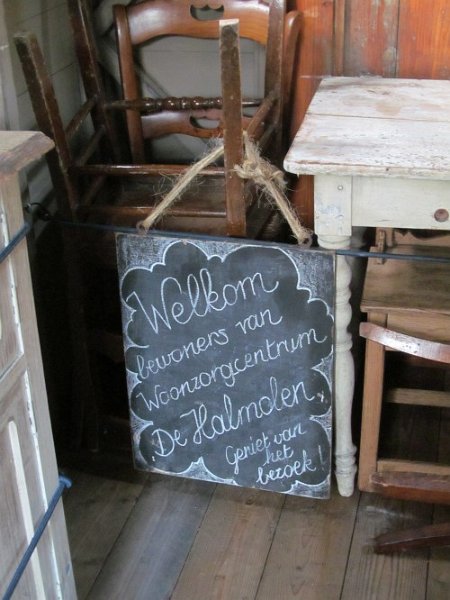 Welkom
bewoners van
Woonzorgcentrum
De Halmolen,
Geniet van
het
bezoek!